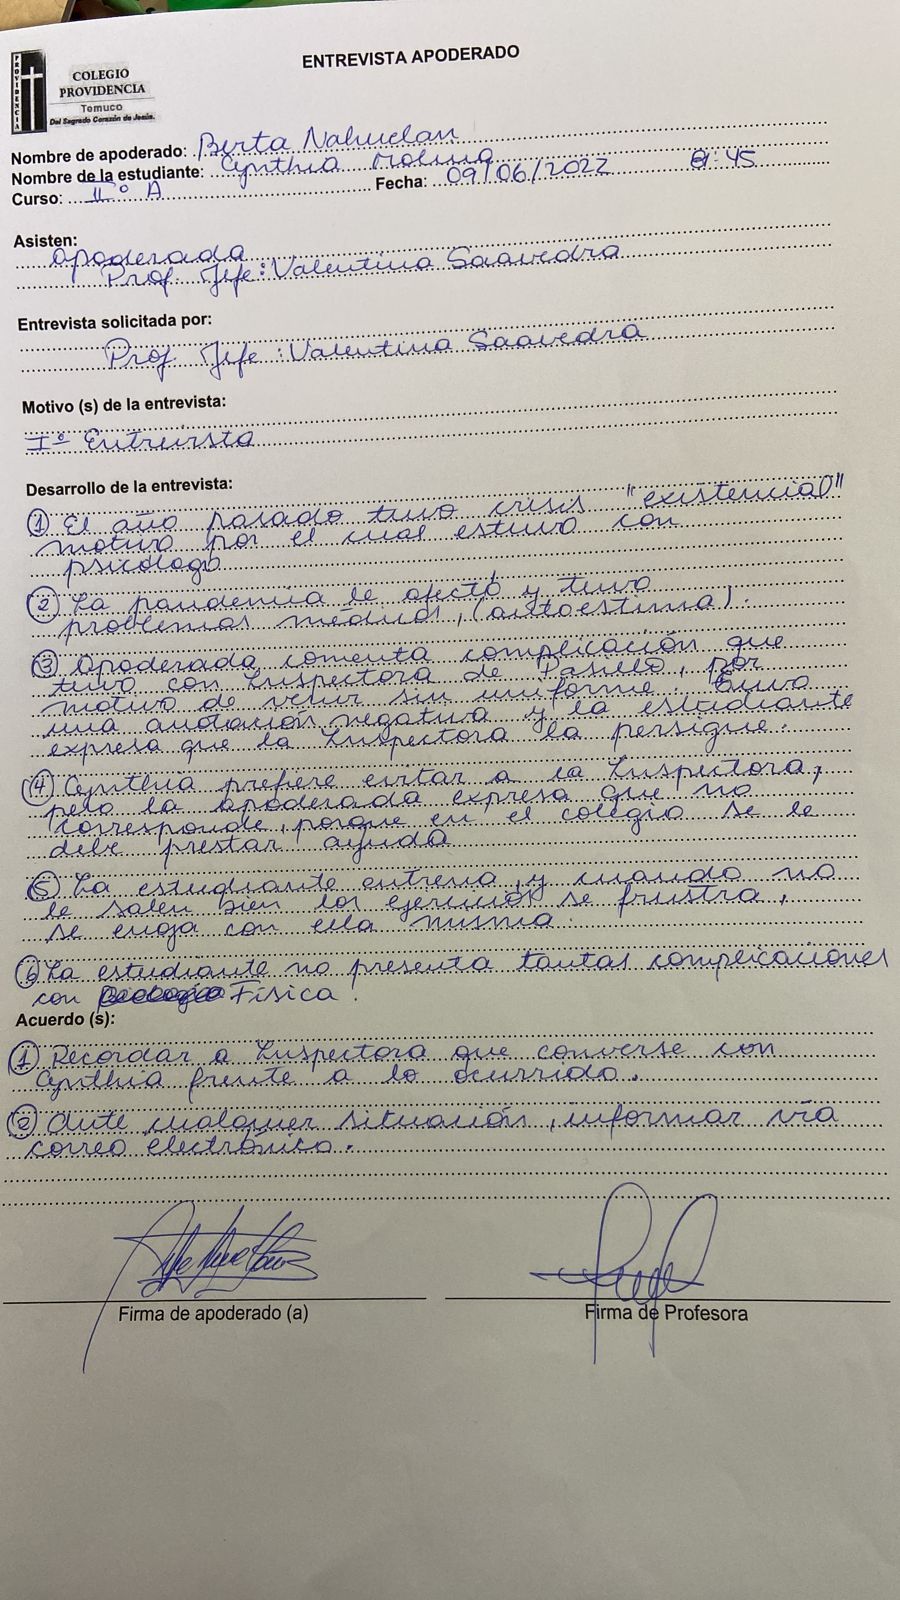 ENTREVISTA APODERADO
PROVIDENCIA
COLEGIO
PROVIDENCIA
Temuco
Del Sagrado Corazón de Jesús.
Nombre de apoderado: Berta Nahuelan
Nombre de la estudiante: Cynthia Molina
Curso: II° A Fecha: 09/06/2022 8:45
Asisten:
Apoderada
Prof. Jefe: Valentina Saavedra
Entrevista solicitada por:
Prof. Jefe: Valentina Saavedra
Motivo (s) de la entrevista:
I° Entrevista
Desarrollo de la entrevista:
① El año pasado tuvo crisis "existencial"
motivo por el cual estuvo con
psicólogo
② La pandemia le afectó y tuvo
problemas médicos, (autoestima).
③ Apoderada comenta complicación que
tuvo con Inspectora de Pasillo, por
motivo de venir sin uniforme. Tuvo
una anotación negativa y la estudiante
expresa que la Inspectora la persigue.
④ Cynthia prefiere evitar a la Inspectora,
pero la apoderada expresa que no
corresponde, porque en el colegio se le
debe prestar ayuda
⑤ La estudiante entrena, y cuando no
le salen bien los ejercicios se frustra,
se enoja con ella misma.
⑥ La estudiante no presenta tantas complicaciones
con Física.
Acuerdo (s):
① Recordar a Inspectora que converse con
Cynthia frente a lo ocurrido.
② Ante cualquier situación, informar vía
correo electrónico.
Firma de apoderado (a) Firma de Profesora